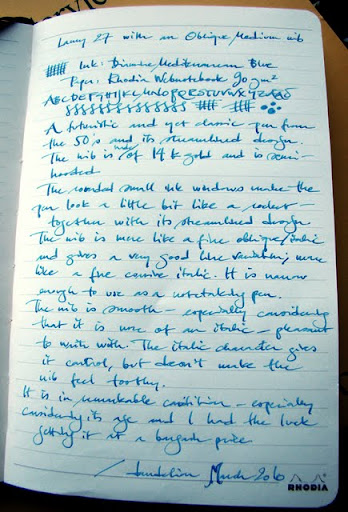 Lamy 27 with an Oblique Medium nib
Ink: Diamine Mediterranean Blue
Paper: Rhodia Webnotebook 90 gm²
ABCDEFGHIJKLMNOPQRSTUVWXYZ
A futuristic and yet classic pen from
the 50's and its streamlined design.
The nib is made of 14 k gold and is semi-
hooded
The rounded small ink windows make the
pen look a little bit like a rocket -
together with its streamlined design
The nib is more like a fine oblique/italic
and gives a very good line variation, more
like a fine cursive italic. It is narrow
enough to use as a notetaking pen.
The nib is smooth - especially considering
that it is more of an italic - pleasant
to write with. The italic character gives
it control, but doesn't make the
nib feel toothy.
It is in remarkable condition - especially
considering its age and I had the luck
getting it at a bargain price
/dandelion March 2010
RHODIA